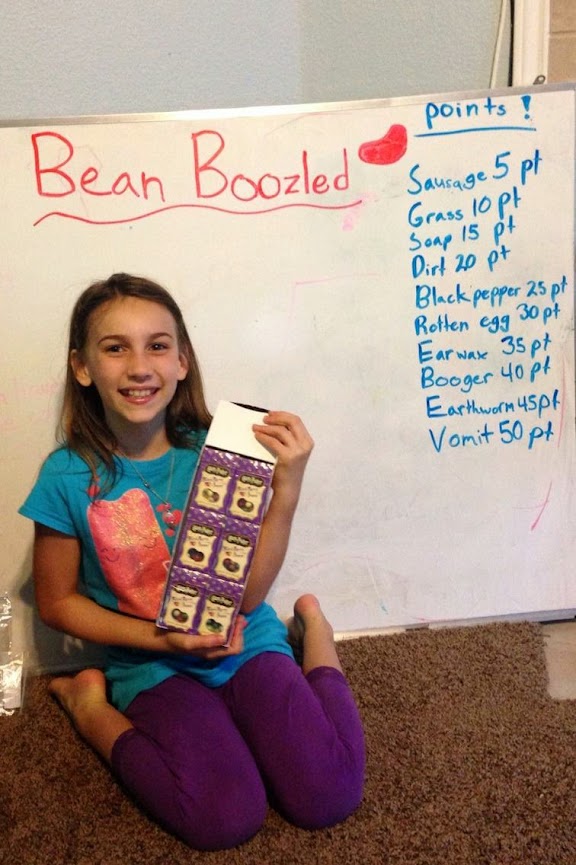 Bean Boozled
points !
Sausage 5 pt
Grass 10 pt
Soap 15 pt
Dirt 20 pt
Black pepper 25 pt
Rotten egg 30 pt
Earwax 35 pt
Booger 40 pt
Earthworm 45 pt
Vomit 50 pt